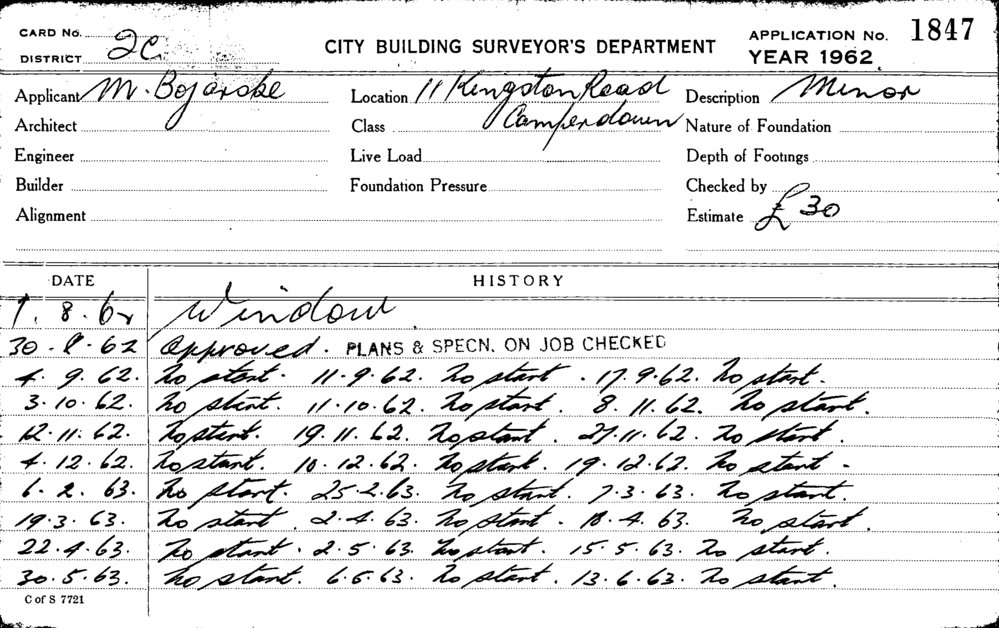 CARD No. 2C
DISTRICT
CITY BUILDING SURVEYOR'S DEPARTMENT
APPLICATION No. 1847
YEAR 1962
Applicant M. Bojarske Location 11 Kingston Road Description Minor
Architect Class Camperdown Nature of Foundation
Engineer Live Load Depth of Footings
Builder Foundation Pressure Checked by
Alignment Estimate £ 30
DATE HISTORY
1. 8. 62 Window
30. 8. 62 Approved. PLANS & SPECN. ON JOB CHECKED
4. 9. 62. No start. 11.9.62. No start. 17.9.62. No start.
3.10.62. No start. 11.10.62. No start. 8.11.62. No start.
12.11.62. No start. 19.11.62. No start. 27.11.62. No start.
4.12.62. No start. 10.12.62. No start. 19.12.62. No start.
6.2.63. No start. 25.2.63. No start. 7.3.63. No start.
19.3.63. No start. 2.4.63. No start. 18.4.63. No start.
22.4.63. No start. 2.5.63. No start. 15.5.63. No start.
30.5.63. No start. 6.6.63. No start. 13.6.63. No start.
C of S 7721